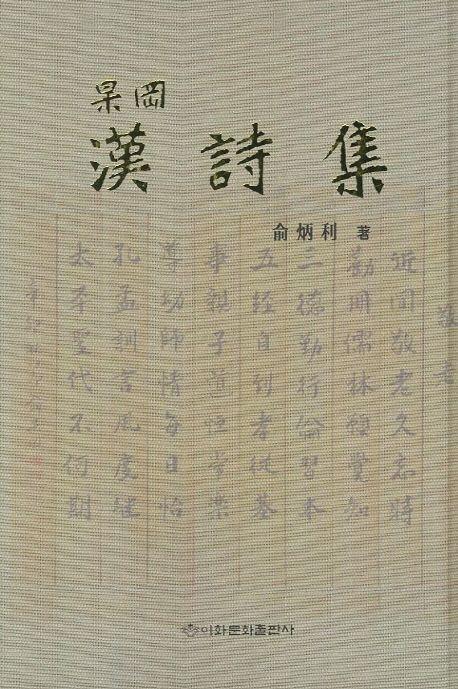 杲岡
漢詩集
兪炳利 著
敬老
近間敬老久忘時
勸用儒林順覺知
三德勤行倫習本
五經自到孝從基
事親子道恒常樂
尊幼師情每日怡
孔孟訓言風度繼
太平聖代不何期
이화문화출판사